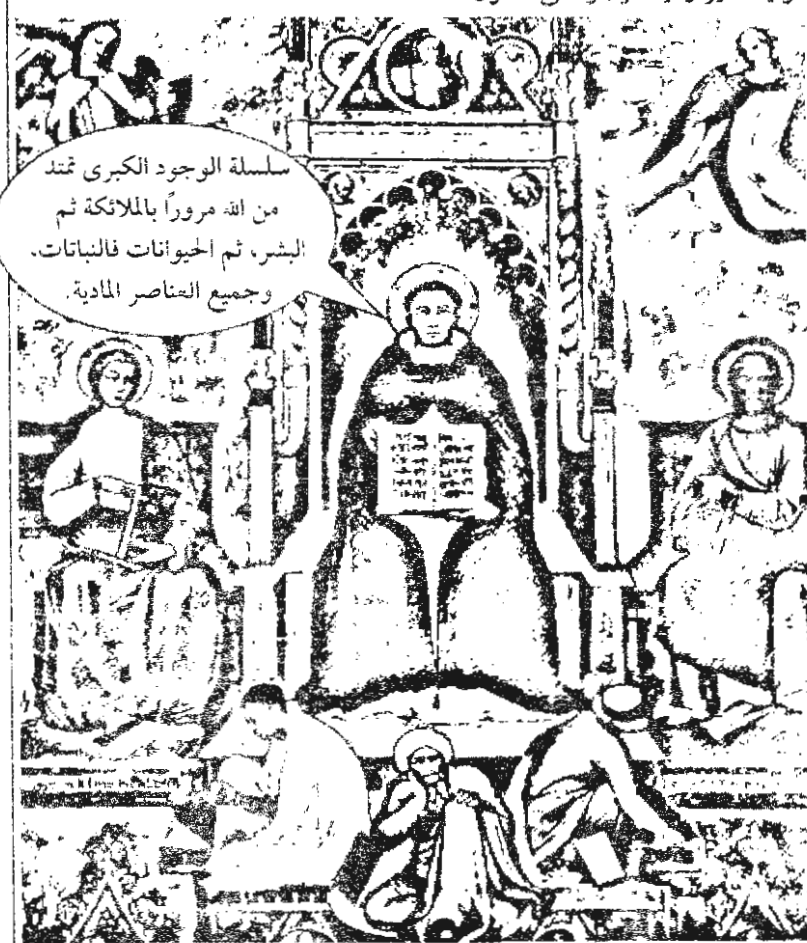 سلسلة الوجود الكبرى تمتد
من الله مرورًا بالملائكة ثم
البشر، ثم الحيوانات فالنباتات.
وجميع العناصر المادية.